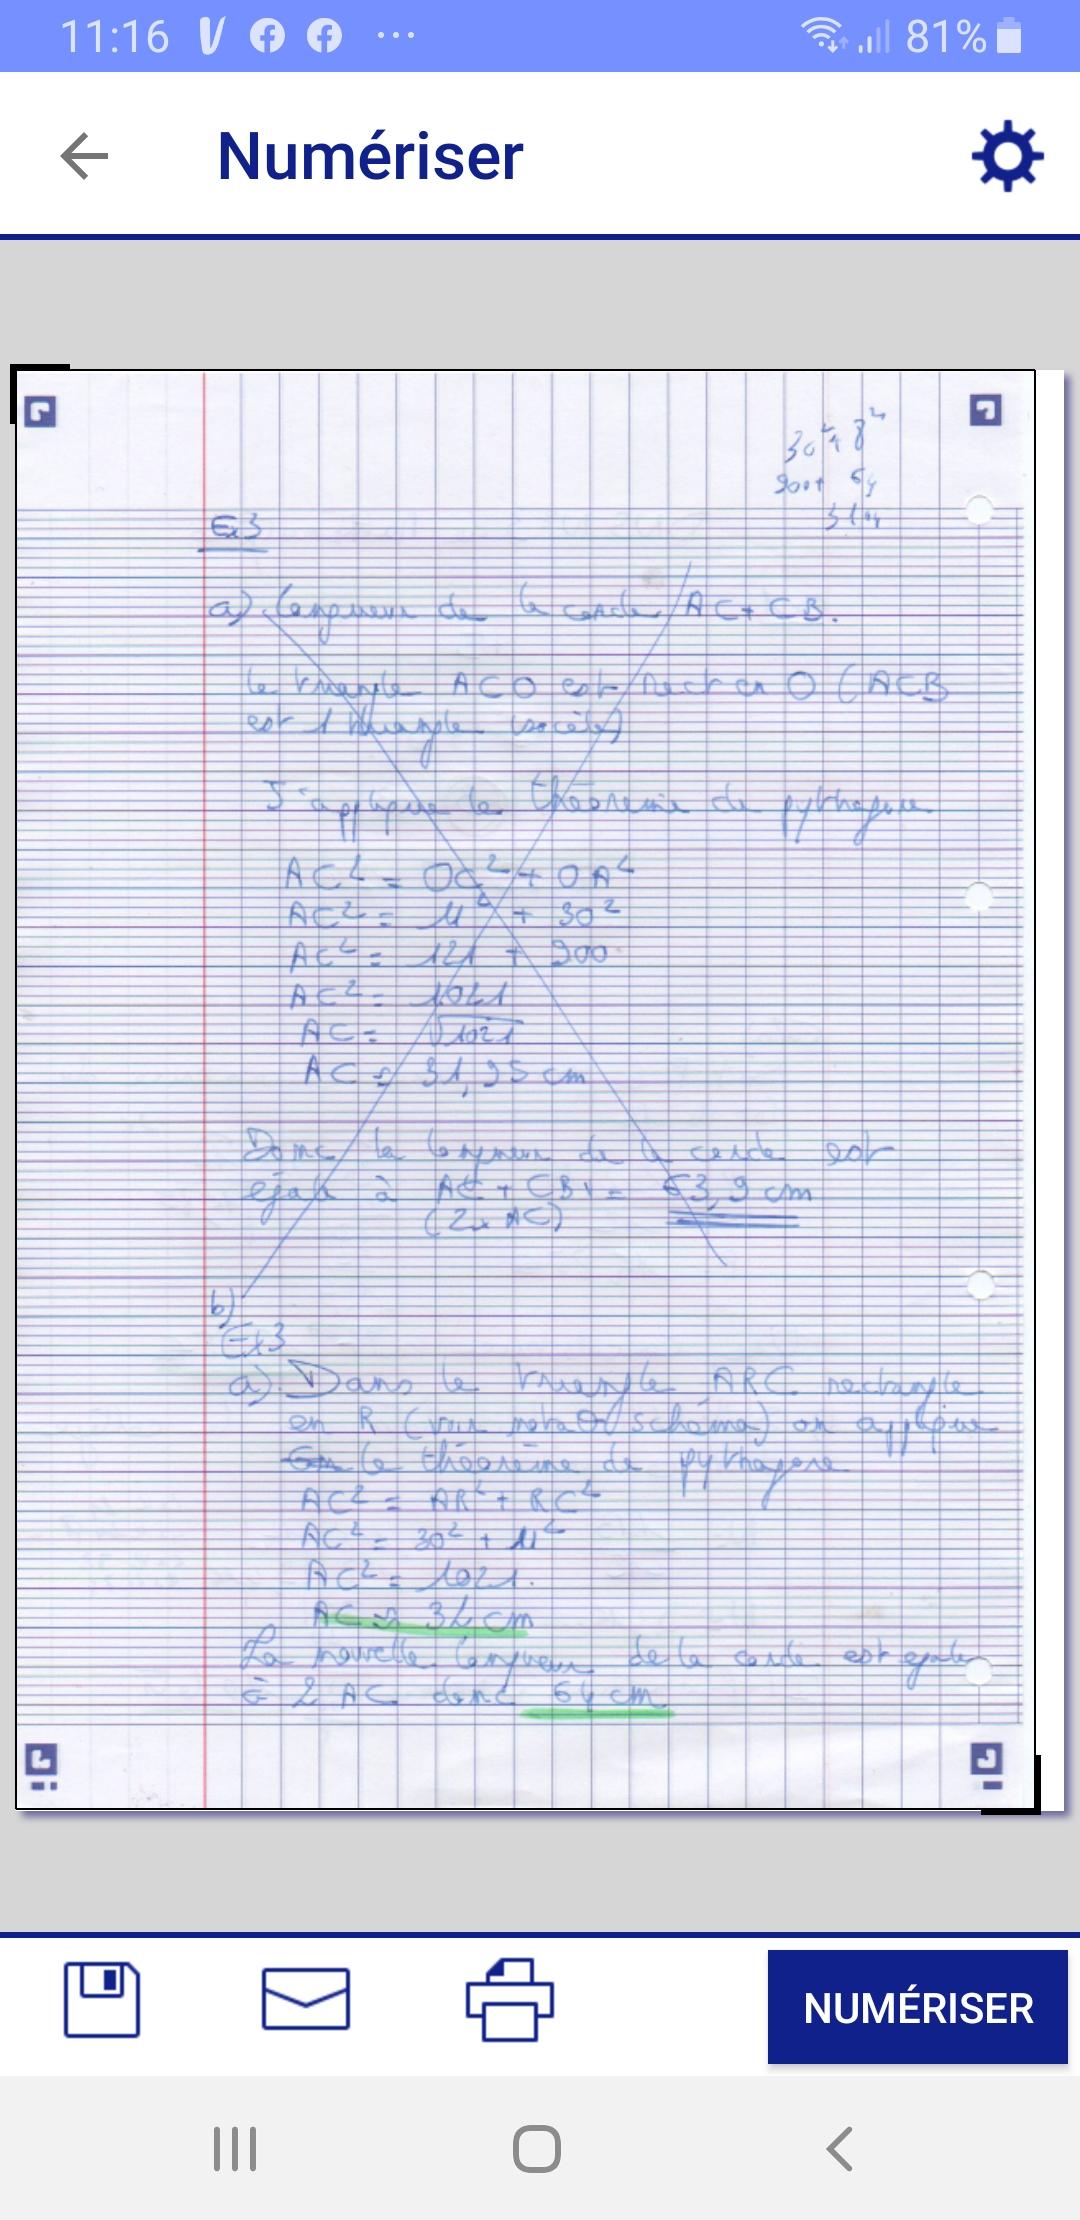 11:16 81%
Numériser
30² + 8²
900+ 64
Ex3
a) Longueur de la corde AC + CB.
le triangle ACO est rect en O (ACB
est 1 triangle isocèle)
J'applique le théorème de pythagore
AC² = OC² + OA²
AC² = 11² + 30²
AC² = 121 + 900
AC² = 1021
AC = √1021
AC ≈ 31,95 cm
Donc la longueur de la corde est
égale à AC + CB = 63,9 cm
(2 x AC)
b)
Ex3
a) Dans le triangle ARC rectangle
en R (voir schéma) on applique
le théorème de pythagore
AC² = AR² + RC²
AC² = 30² + 11²
AC² = 1021.
AC ≈ 32 cm
La nouvelle longueur de la corde est égale
à 2 AC donc 64 cm
NUMÉRISER